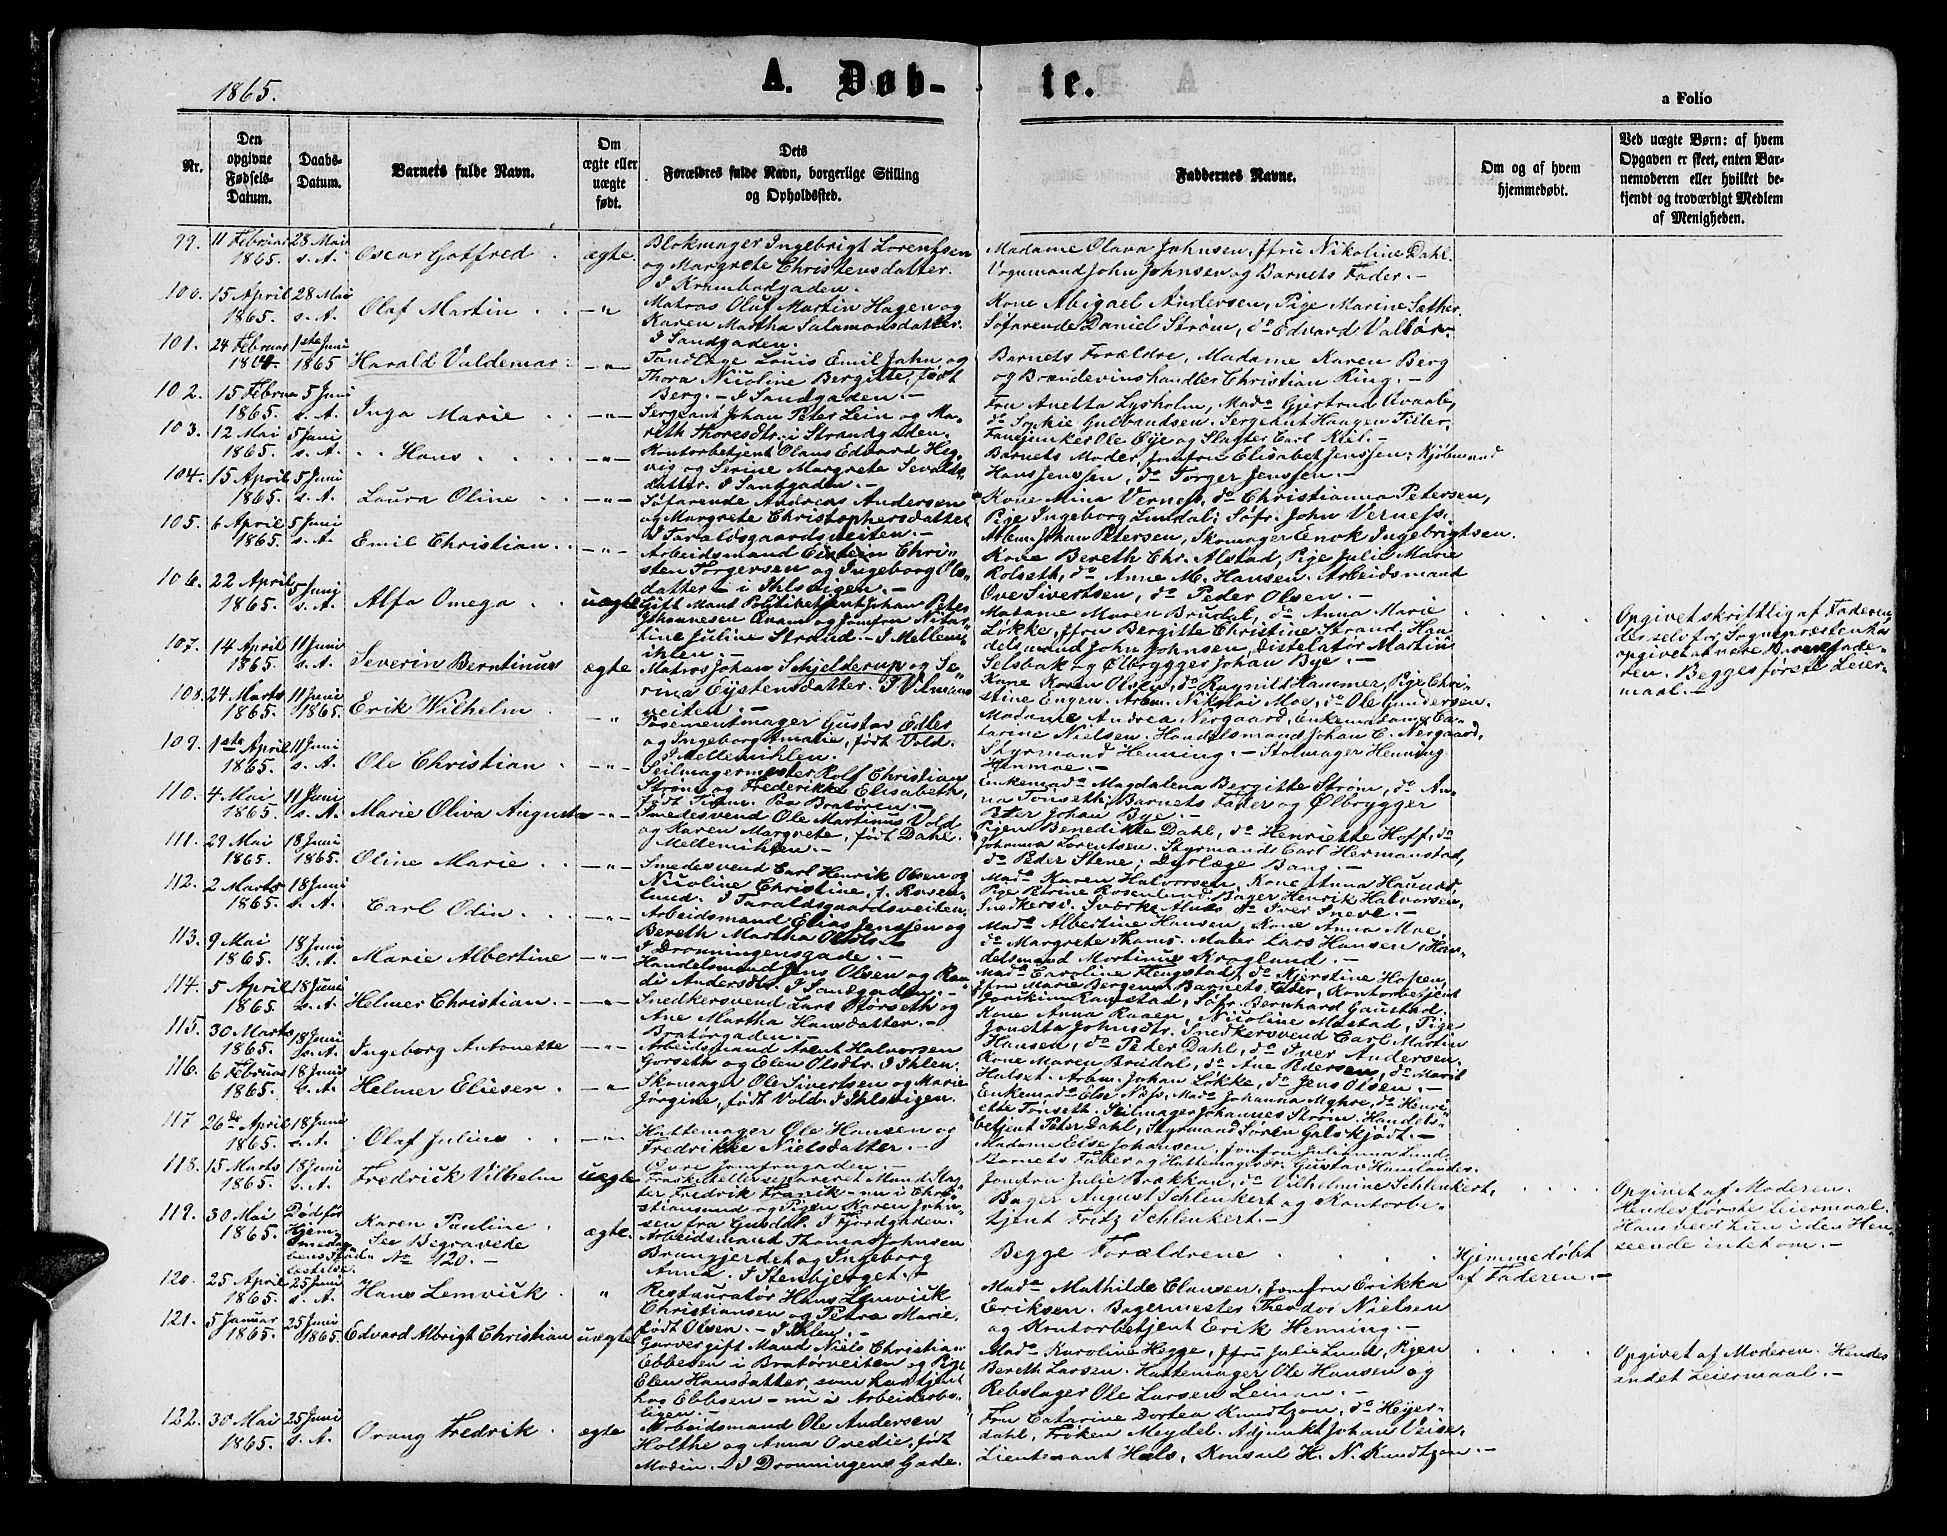 1865.
A. Døb-
te.
a Folio
Nr.
Den opgivne Fødsels-Datum.
Daabs-Datum.
Barnets fulde Navn.
Om ægte eller uægte født.
Dets Forældres fulde Navn, borgerlige Stilling og Opholdssted.
Faddernes Navne.
Om og af hvem hjemmedøbt.
Ved uægte Børn: af hvem Opgaven er skeet, enten Barnemoderen eller hvilket bekjendt og troværdigt Medlem af Menigheden.
99. 11 Februar 1865. 28 Mai s. A. Oscar Gotfred. ægte.
Blokmager Ingebrigt Lorentsen
og Margrete Christensdatter.
I Krambodgaden.
Madame Olava Johnsen, Jfru Nikoline Dahl.
Vognmand John Johnsen og Barnets Fader.-
100. 15 April 1865. 28 Mai s. A. Olaf Martin. -"-
Matros Oluf Martin Hagen og
Karen Martha Salamonsdatter.
I Sandgaden.
Kone Abigael Andersen, Pige Marine Sæther.
Søfarende Daniel Strøm, do Edvard Valsør.
101. 24 Februar 1864. 1ste Juni 1865 Harald Valdemar: -"-
Tandlæge Louis Emil Jahn og
Thora Nicoline Bergitte, født
Berg.- I Sandgaden.-
Barnets Forældre, Madame Karen Berg
og Brændevinshandler Christian Ring.-
102. 15 Februar 1865. 5 Juni s. A. Inga Marie. -"-
Sergeant Johan Peter Lein og Ma-
reth Thoresdtr. i Strandgaden.
Fru Anetta Lysholm, Mada Gjertrud Qvaale,
do Sophie Gulbrandsen. Sergeant Haagen Tiller,
Fanejunker Ole Øye og Slagter Carl Kiel.-
103. 12 Mai 1865. 5 Juni s. A. Hans. -"-
Kontorbetjent Olaus Edvard Heg-
vig og Serine Margrete Sevalds-
datter. I Sandgaden.-
Barnets Moder, Jomfru Elisabet Jenssen; Kjøbmand
Hans Jenssen, do Torger Jenssen.-
104. 15 April 1865. 5 Juni s. A. Laura Oline. -"-
Søfarende Andreas Andersen
og Margrete Christophersdatter
I Taraldsgaardsveiten.-
Kone Mina Verness, do Christianna Petersen,
Pige Ingeborg Lundal; Søfr. John Verness,
Arbm. Johan Petersen, Skomager Enok Ingebrigtsen.
105. 6 April 1865. 5 Juni s. A. Emil Christian. -"-
Arbeidsmand Eistein Chri-
sten Torgersen og Ingeborg Ols-
datter - i Ihlsvigen.-
Kone Bereth Chr. Alstad, Pige Julie Marie
Rolseth, do Anne M. Hansen. Arbeidsmand
Ove Sivertsen, do Peder Olsen.-
106. 22 April 1865. 5 Juni s. A. Alfa Omega. uægte
Gift Mand Politibetjent Johan Peter
Johannesen Qvam og Jomfru Nitar-
tine Juline Strand.- I Mellem-
ihlen.-
Madame Maren Brudal, do Anna Marie
Løkke, Jfru Bergitte Christine Strand, Han-
delsmand John Johnsen, Distelatør Martin
Selsbak og Ølbrygger Johan Bye.-
Opgivet skriftlig af Faderen,
der selv for Sognepræsten har
opgivet at være Barnefade-
ren. Begges første Leier-
maal.-
107. 14 April 1865. 11 Juni s. A. Severin Berntinus ægte
Matros Johan Schjelderup og Se-
rina Eystensdatter. I Vilmans-
veiten.-
Kone Karen Olsen, do Ragnild Hammer, Pige Chri-
stine Engen. Arbm. Nikolai Moe, do Ole Gundersen.
108. 24 Marts 1865. 11 Juni 1865. Erik Wilhelm. -"-
Posementmager Gustav Edler
og Ingeborg Amalie, født Vold.
I Mellemihlen.
Madame Andrea Nergaard, Enkemadame Ca-
tarine Nielsen. Handelsmand Johan C. Nergaard,
Styrmand Henning.- Stolmager Henning
Hinmoe.-
109. 1ste April 1865. 11 Juni s. A. Ole Christian. -"-
Seilmagermester Rolf Christian
Strøm og Frederikke Elisabeth,
født Timm. Paa Bratøren.-
Enkemada Magdalena Bergitte Strøm, do An-
na Tonseth; Barnets Fader og Ølbrygger
Peter Johan Bye.-
110. 4 Mai 1865. 11 Juni s. A. Marie Oliva Augusta -"-
Smedesvend Ole Martinus Vold
og Karen Margrete, født Dahl.
I Mellemihlen.-
Pigen Benedikte Dahl, do Henriette Hoff, do
Johanna Lorentsen. Styrmand Carl Hermanstad,
do Peder Stene; Dyrlæge Bang.-
111. 29 Mai 1865. 18 Juni 1865. Oline Marie. -"-
Smedesvend Carl Henrik Olsen og
Nicoline Christine, f. Rosen-
lund. I Taraldsgaardsveiten.
Mada Karen Halvorsen, Kone Anna Hauned,
Pige Perine Rosenlund. Bager Henrik Halvorsen,
Snedkersv. Sverke Alnes do Iver Sneve.-
112. 2 Marts 1865. 18 Juni s. A. Carl Odin. -"-
Arbeidsmand Elias Jenssen og
Bereth Martha Olsdtr.
I Dronningensgade.-
Mada Albertine Hansen, Kone Anna Moe,
do Margrete Thams. Maler Lars Hansen, Han-
delsmand Mortinus Kroglund.-
113. 9 Mai 1865. 18 Juni s. A. Marie Albertine -"-
Handelsmand Jens Olsen og Ran-
di Andersdtr. I Sandgaden.-
Mada Caroline Flengstad, do Kjerstine Hofsen,
Jfru Marie Bergem. Barnets Fader, Kontorbetjent
114. 5 April 1865. 18 Juni s. A. Helmer Christian. -"-
Snedkersvend Lars Størseth og
Ane Martha Hansdatter.-
Bratørgaden.-
Kone Anna Raaen, Nicoline Mostad, Pige
Jonetta Johnsdtr. Snedkersvend Carl Martin
Hansen, do Peder Dahl, do Iver Andersen.
115. 30 Marts 1865. 18 Juni s. A. Ingeborg Antonette -"-
Arbeidsmand Arent Halvorsen
Gorseth og Elen Olsdtr. I Ihlen.
Kone Maren Brudal, do Ane Pedersen, do Marit
Halset. Arbm. Johan Løkke, do Jens Olsen.-
116. 6 Februar 1865. 18 Juni s. A. Helmer Elieser. -"-
Skomager Ole Sivertsen og Marie
Jørgine, født Vold. I Ihlsvigen.
Enkemada Else Næss, Mada Johanna Myhre, do Henri-
ette Tønseth. Seilmager Johannes Strøm, Handels-
betjent Peter Dahl, Styrmand Søren Galskjødt.-
117 26de April 1865. 18 Juni s. A. Olaf Julius. -"-
Hattemager Ole Hansen og
Fredrikke Nielsdatter.-
Øvre Jomfrugaden.-
Madame Else Johansen, Jomfru Julianna Lund.
Barnets Fader og Hattemagersv. Gustav Hamlander.
118. 15 Marts 1865. 18 Juni s. A. Fredrick Vilhelm uægte
Fraskilt eller separeret Mand Slag-
ter Fredrik Franck - nu i Chri-
stiansund og Pigen Karen Johan-
sen fra Gusdal. I Fjordgaden.-
Jomfru Julie Brakkan, do Vilhelmine Schlenkert,
Bager August Schlenkert og Kontorbe-
tjent Fritz Schlenkert.-
Opgivet af Moderen.
Hendes første Leiermaal.
Hans veed hun i den Hen-
seende intet om.-
119. 30 Mai 1865. Død før Hjemmedaabens Stadfæstelse. Karen Pauline. See Begravede No 120.- ægte.
Arbeidsmand Thomas Johnsen
Brungjerdet og Ingeborg
Anna. I Stenbjerget.-
Begge Forældrene
Hjemmedøbt
af Faderen.-
120. 25 April 1865. 25 Juni s. A. Hans Lemvick. "
Restauratør Hans Lemvick
Christiansen og Petra Marie,
født Olsen.- I Ihlen.-
Mada Mathilde Clausen, Jomfru Erikka
Eriksen. Bagermester Theodor Nielsen
og Kontorbetjent Erik Henning.-
121. 5 Januar 1865. 25 Juni 1865. Edvard Albrigt Christian uægte
Garver gift Mand Niels Christian
Ebbesen i Bratørveiten og Pige
Elen Hansdatter, som har tjent
hos Ebbesen - nu i Arbeiderbo-
ligen.-
Mada Karoline Hegge, Jfru Julie Lund, Pigen
Bereth Larsen. Hattemager Ole Hansen og
Rebslager Ole Larsen Leinan.-
Opgivet af Moderen. Hendes
andet Leiermaal.-
122. 30 Mai 1865. 25 Juni s. A. Orang Fredrik. ægte.
Arbeidsmand Ole Andersen
Holthe og Anna Ovedie, født
Modin.- I Dronningens Gade.
Fru Catarine Dortea Knudtzon, do Heyer-
dahl, Frøken Meydel. Adjunkt Johan Veise,
Lieutenant Hals, Konsul H. N. Knudtzon.-